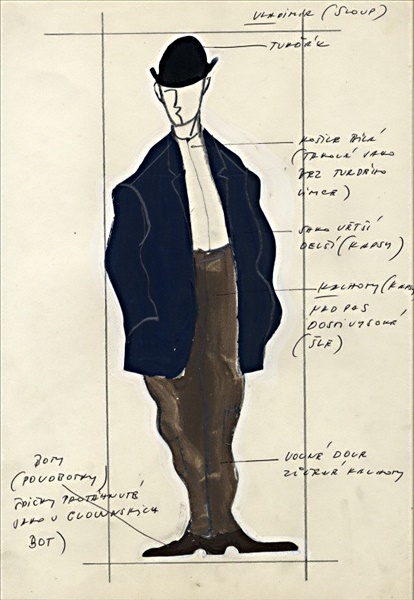 VLADIMÍR (SLOUP)
TVRĎÁK
KOŠILE BÍLÁ
(TAKOVÁ JAKO
BEZ TVRDÉHO
LÍMCE)
SAKO VĚTŠÍ
DELŠÍ (KAPSY)
KALHOTY (KAPSY
NAD PAS
DOSTI VYSOKÉ
(ŠLE)
VOLNÉ DOLŮ
ZÚŽENÉ KALHOTY
BOTY
(POLOBOTKY)
ŠPIČKY PROTÁHNUTÉ
JAKO U CLOWNSKÝCH
BOT)